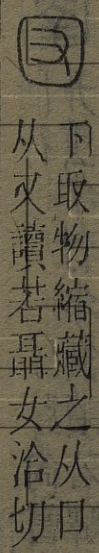 㘝
下取物縮藏之从囗
从又讀若聶女洽切